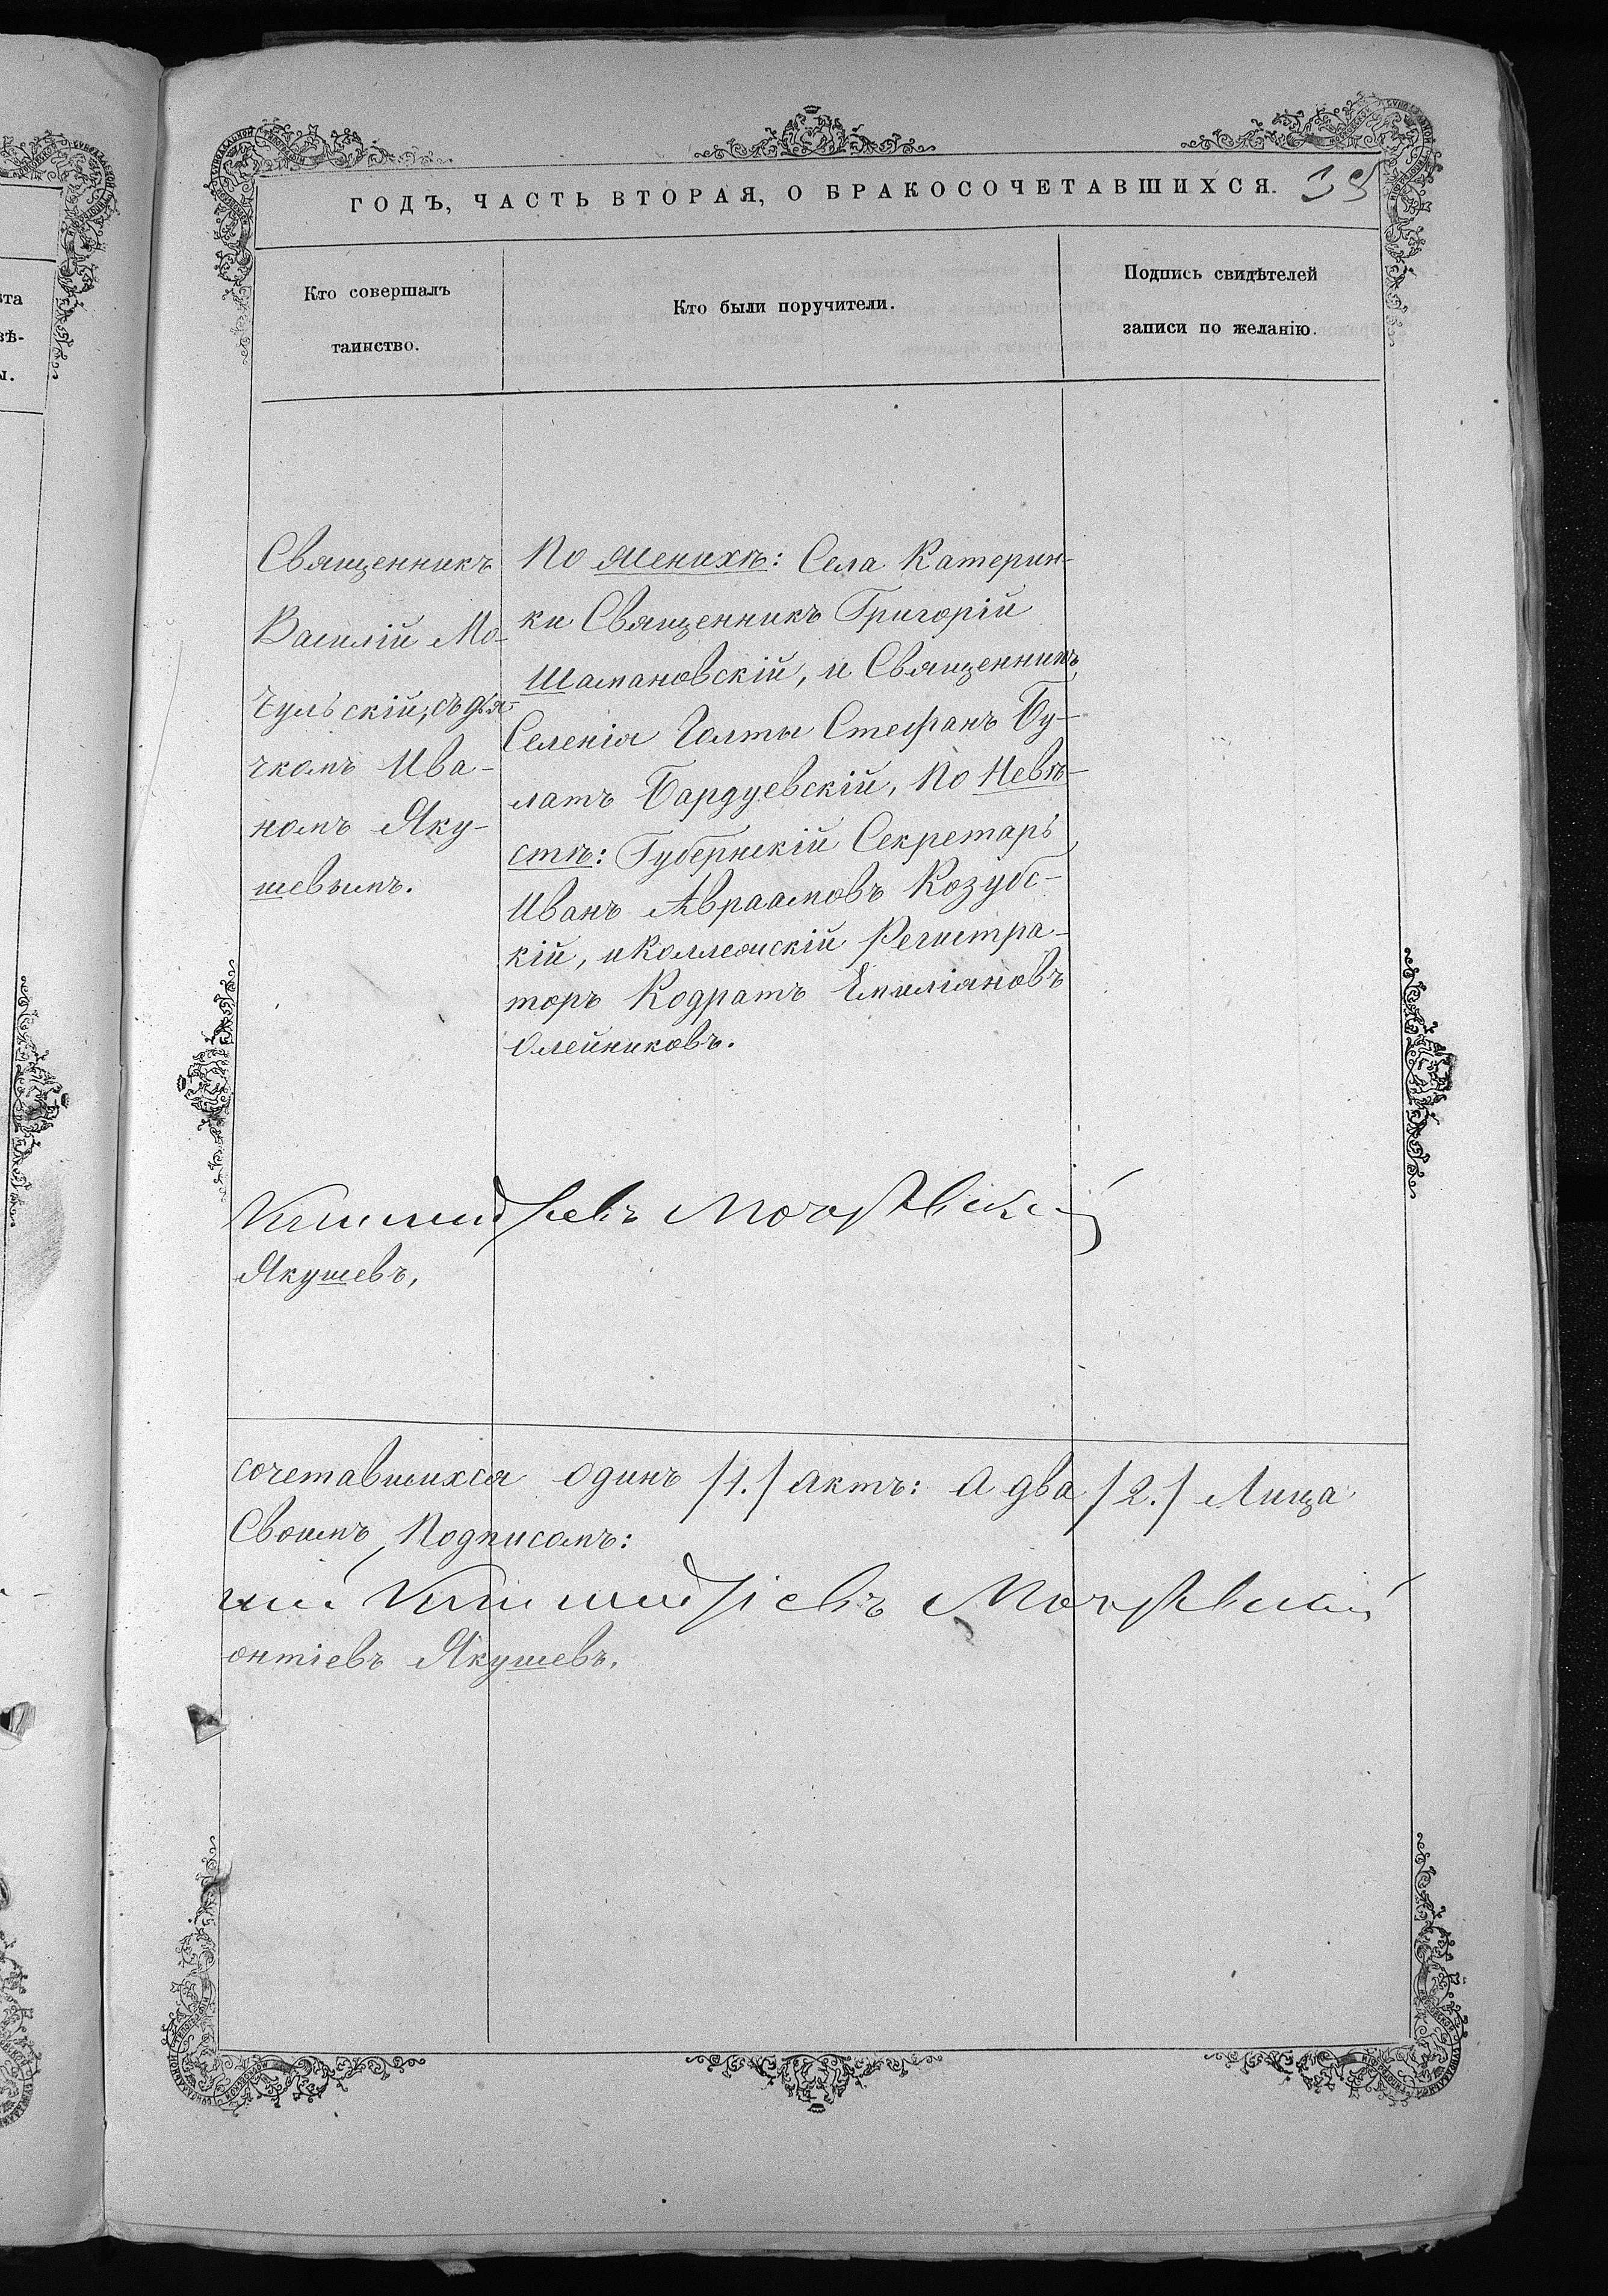 ГОДЪ, ЧАСТЬ ВТОРАЯ, О БРАКОСОЧЕТАВШИХСЯ.
Кто совершалъ
таинство.
Кто были поручители.
Подпись свидѣтелей
записи по желанію.
Священникъ
Василій Мо-
чульскій, съ дья-
чкомъ Ива-
номъ Яку-
шевымъ.
По Женихѣ: Села Катерин-
ки Священникъ Григорій
Шамановскій, и Священникъ
Селенія Голты Стефанъ Бу-
латъ Бардуевскій, По Невѣ-
стѣ: Губернскій Секретарь
Иванъ Авраамовъ Козубс-
кій, и Коллежскій Регистра-
торъ Кодратъ Емиліановъ
Олейниковъ.
Якушевъ,
сочетавшихся одинъ /1./ актъ: а два /2./ Лица
Своимъ Подписомъ:
онтіевъ Якушевъ.